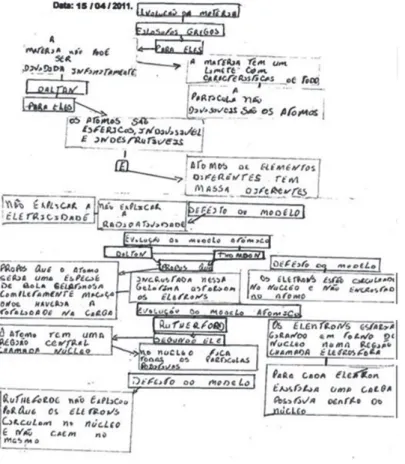 Data: 15/04/2011.
EVOLUÇÃO DA MATÉRIA
FILOSOFOS GREGOS
PARA ELES
A
MATÉRIA NÃO PODE
SER
DIVIDIDA INFINITAMENTE
A MATÉRIA TEM UM
LIMITE COM
CARACTERÍSTICAS DE TODO
A
PARTICULA NÃO
DIVISIVEIS SÃO OS ATOMOS
DALTON
PARA ELES
OS ATOMOS SÃO
ESFERICOS, INDIVISIVEL
E INDESTRUTIVEIS
E
ATOMOS DE ELEMENTOS
DIFERENTES TEM
MASSA DIFERENTES
NÃO EXPLICAR A
ELETRICIDADE
NÃO EXPLICAR
A
RADIOATIVIDADE
DEFEITO DO MODELO
EVOLUÇÃO DO MODELO ATÔMICO
DALTON
THOMSON
PROPOS QUE
PROPOS QUE O ATOMO
SERIA UMA ESPECIE
DE BOLA GELATINOSA
COMPLETAMENTE MACIÇA
ONDE HAVERIA A
TOTALIDADE DA CARGA
INCRUSTADA NESSA
GELATINA ESTARIAM
OS ELETRONS
DEFEITO DO MODELO
OS ELETRONS ESTÃO CIRCULANDO
NO NÚCLEO E NÃO ENCRUSTADO
NO ATOMO
EVOLUÇÃO DO MODELO ATOMICO
RUTHERFORD
SEGUNDO ELE
O ATOMO TEM UMA
REGIÃO CENTRAL
CHAMADA NÚCLEO
NO NUCLEO FICA
TODAS OS PARTICULAS
POSITIVAS
OS ELENTRONS ESTARIA
GIRANDO EM TORNO DO
NUCLEO NUMA REGIÃO
CHAMADA ELETROSFERA
PARA CADA ELETRON
EXISTIRIA UMA CARGA
POSITIVA DENTRO DO
NÚCLEO
DEFEITO DO MODELO
RUTHEFORDE NÃO EXPLICOU
PORQUE OS ELETRONS
CIRCULAM NO NÚCLEO
E NÃO CAEM NO
MESMO